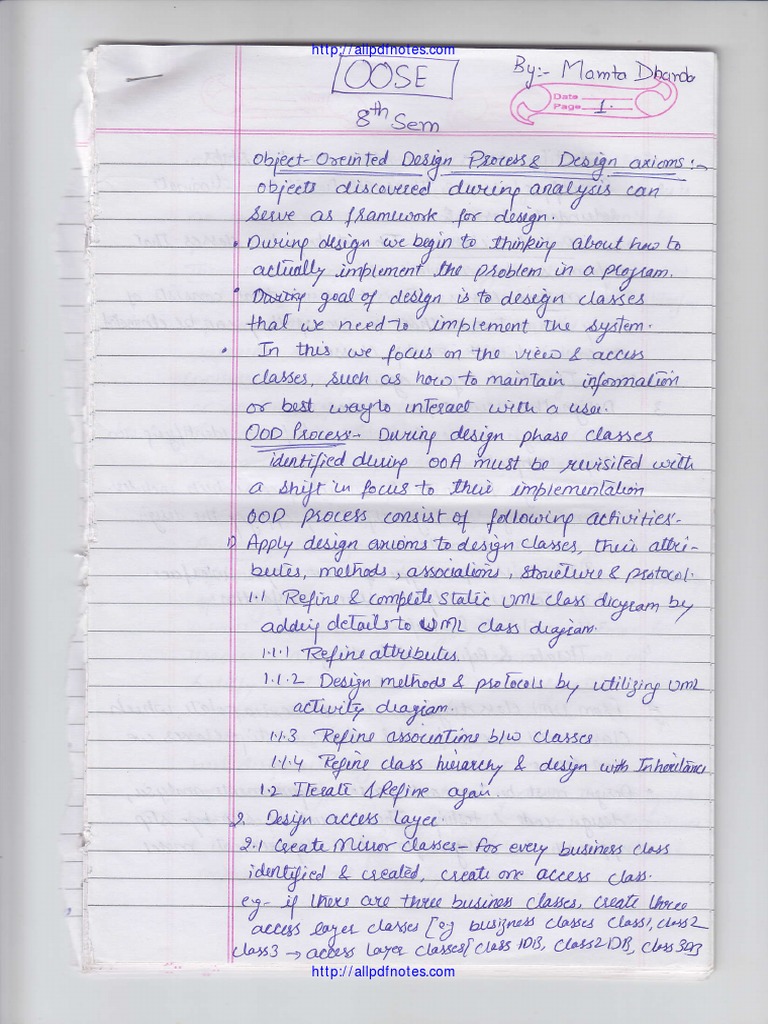 http://allpdfnotes.com
OOSE
By:- Mamta Dharda
Date
Page 1.
8th Sem
Object-Oreinted Design Process & Design axioms:-
objects discovered during analysis can
serve as framework for design.
• During design we begin to thinking about how to
actually implement the problem in a program.
• During goal of design is to design classes
that we need to implement the system.
• In this we focus on the view & access
classes, such as how to maintain information
or best way to interact with a user.
OOD Process- During design phase classes
identified during OOA must be revisited with
a shift in focus to their implementation
OOD process consist of following activities-
1) Apply design axioms to design classes, their attri-
butes, methods, associations, structure & protocol.
1.1 Refine & complete static UML class diagram by
adding details to UML class diagram.
1.1.1 Refine attributes.
1.1.2 Design methods & protocols by utilizing UML
activity diagram.
1.1.3 Refine associations b/w classes
1.1.4 Refine class hierarchy & design with Inheritance
1.2 Iterate & Refine again.
2. Design access layer.
2.1 Create Mirror classes- For every business class
identified & created, create one access class.
eg- if there are three business classes, create three
access layer classes [eg business classes Class1, class2
Class3 → access layer classes [Class1DB, Class2DB, Class3DB
http://allpdfnotes.com